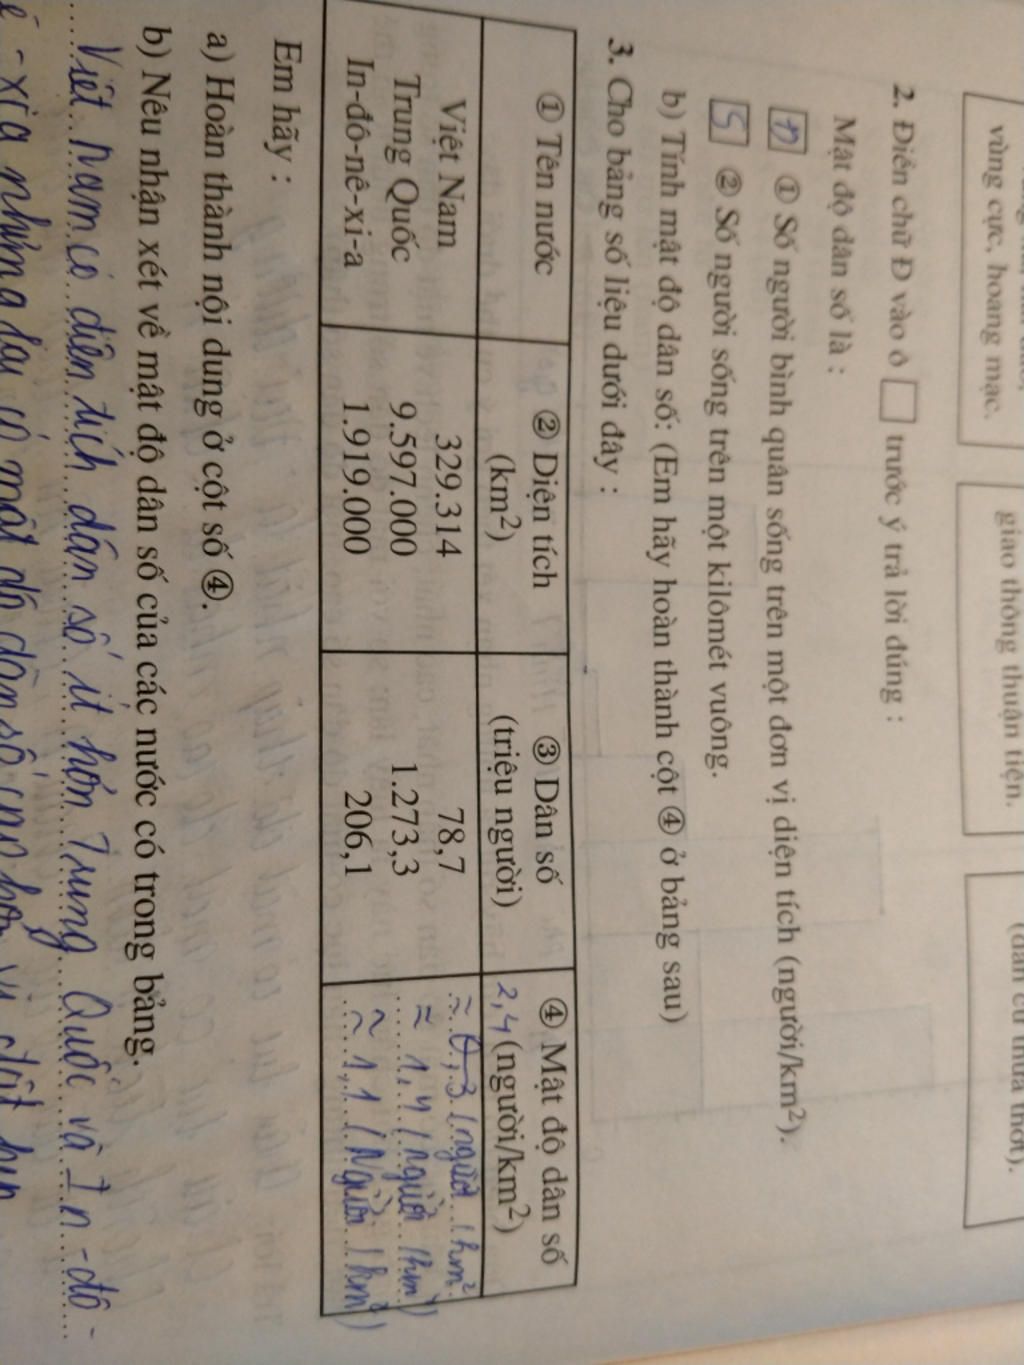 vùng cực, hoang mạc.
giao thông thuận tiện.
(dân cư thưa thớt).
2. Điền chữ Đ vào ô □ trước ý trả lời đúng :
Mật độ dân số là :
Đ ① Số người bình quân sống trên một đơn vị diện tích (người/km²).
S ② Số người sống trên một kilômét vuông.
b) Tính mật độ dân số: (Em hãy hoàn thành cột ④ ở bảng sau)
3. Cho bảng số liệu dưới đây :
① Tên nước ② Diện tích (km²) ③ Dân số (triệu người) ④ Mật độ dân số 2,4 (người/km²)
Việt Nam 329.314 78,7 ≈ 0,3 (người/km²
Trung Quốc 9.597.000 1.273,3 ≈ 1,4 (người/km²)
In-đô-nê-xi-a 1.919.000 206,1 ≈ 1,1 (Người/km²)
Em hãy :
a) Hoàn thành nội dung ở cột số ④.
b) Nêu nhận xét về mật độ dân số của các nước có trong bảng.
Việt Nam có diện tích dân số ít hơn Trung Quốc và In-đô-
ê-xia nhưng lại có mật độ dân số cao hơn